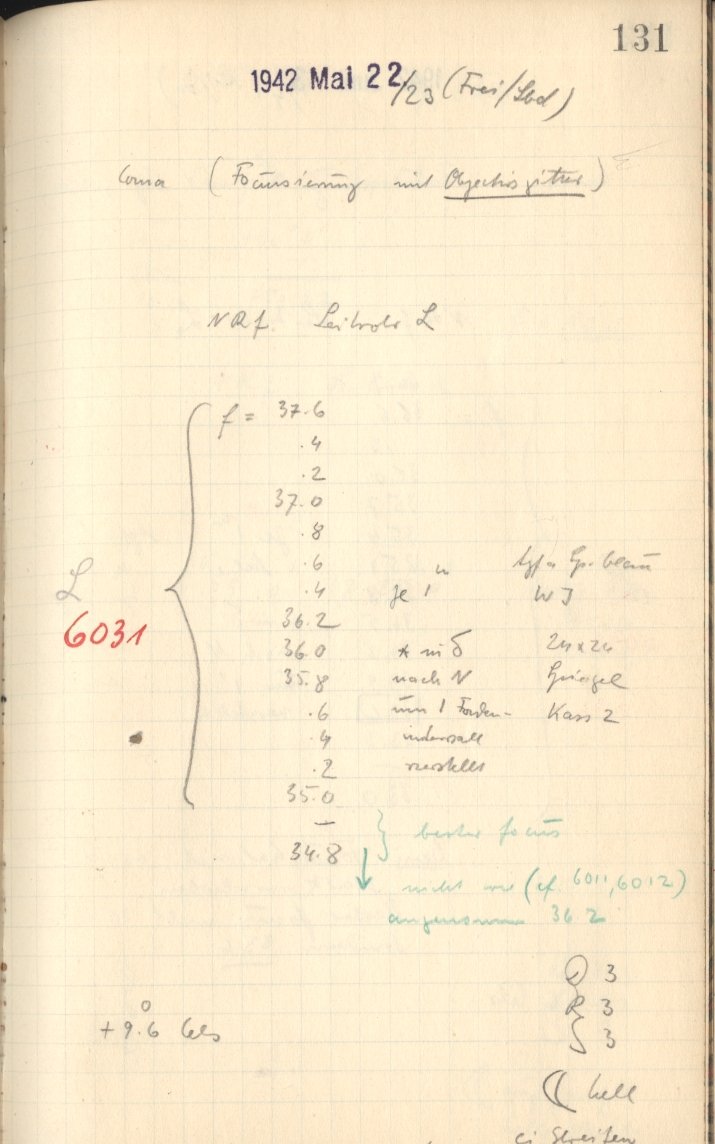 131
1942 Mai 22/23 (Frei/Sbd)
Coma (Focussierung mit Objectivgitter)
NRf. Leitrohr L
f = 37.6
.4
.2
37.0
.8
.6
.4 je 1 m Agfa Sp. blau
36.2 W J
L
6031
36.0 * in δ 24 x 24
35.8 nach N Spiegel
.6 um 1 Faden- Kass 2
.4 intervall
.2 verstellt
35.0
—
34.8 } bester focus
↓ nicht wie (cf. 6011, 6012)
angenommen 36.2
3
+9.6° Cels R 3
S 3
☾ hell
ci Streifen